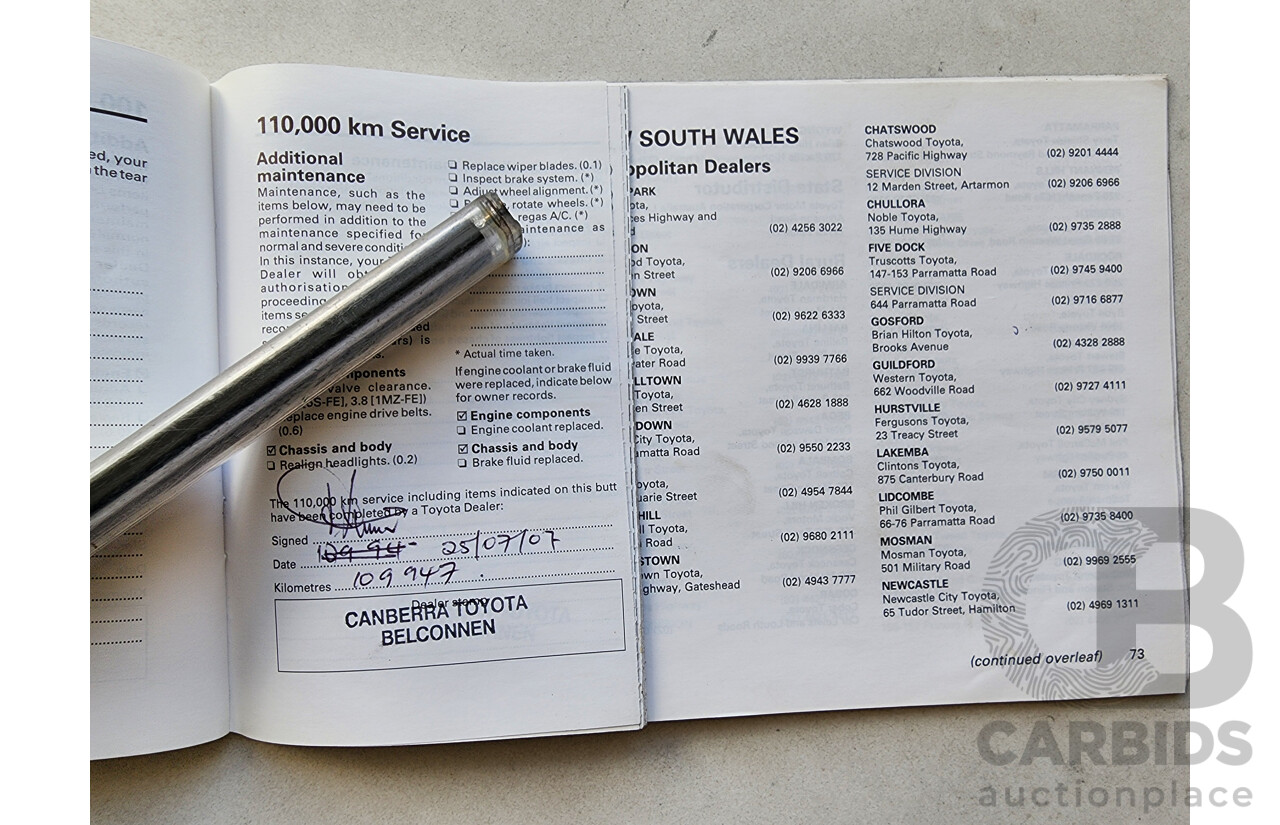 ed, your
the tear
110,000 km Service
Additional
maintenance
Maintenance, such as the
items below, may need to be
performed in addition to the
maintenance specified
normal and severe
In this instance, your
Dealer will
authorisation
proceeding
items
is
valve clearance.
3.8 [1MZ-FE])
engine drive belts.
(0.6)
☑ Chassis and body
❏ Realign headlights. (0.2)
❏ Replace wiper blades. (0.1)
❏ Inspect brake system. (*)
❏ Adjust wheel alignment. (*)
❏ rotate wheels. (*)
regas A/C. (*)
as
* Actual time taken.
If engine coolant or brake fluid
were replaced, indicate below
for owner records.
☑ Engine components
❏ Engine coolant replaced.
☑ Chassis and body
❏ Brake fluid replaced.
The 110,000 km service including items indicated on this butt
have been completed by a Toyota Dealer:
Signed
Date 25/07/07
Kilometres 109 947
Dealer stamp
CANBERRA TOYOTA
BELCONNEN
SOUTH WALES
Dealers
Highway and
(02) 4256 3022
Toyota,
Street (02) 9206 6966
Street (02) 9622 6333
Toyota,
(02) 9939 7766
Toyota,
Street (02) 4628 1888
City Toyota,
Road (02) 9550 2233
Street (02) 4954 7844
HILL
Toyota,
Road (02) 9680 2111
Toyota,
Gateshead (02) 4943 7777
CHATSWOOD
Chatswood Toyota,
728 Pacific Highway (02) 9201 4444
SERVICE DIVISION
12 Marden Street, Artarmon (02) 9206 6966
CHULLORA
Noble Toyota,
135 Hume Highway (02) 9735 2888
FIVE DOCK
Truscotts Toyota,
147-153 Parramatta Road (02) 9745 9400
SERVICE DIVISION
644 Parramatta Road (02) 9716 6877
GOSFORD
Brian Hilton Toyota,
Brooks Avenue (02) 4328 2888
GUILDFORD
Western Toyota,
662 Woodville Road (02) 9727 4111
HURSTVILLE
Fergusons Toyota,
23 Treacy Street (02) 9579 5077
LAKEMBA
Clintons Toyota,
875 Canterbury Road (02) 9750 0011
LIDCOMBE
Phil Gilbert Toyota,
66-76 Parramatta Road (02) 9735 8400
MOSMAN
Mosman Toyota,
501 Military Road (02) 9969 2555
NEWCASTLE
Newcastle City Toyota,
65 Tudor Street, Hamilton (02) 4969 1311
(continued overleaf) 73
CB
CARBIDS
auctionplace